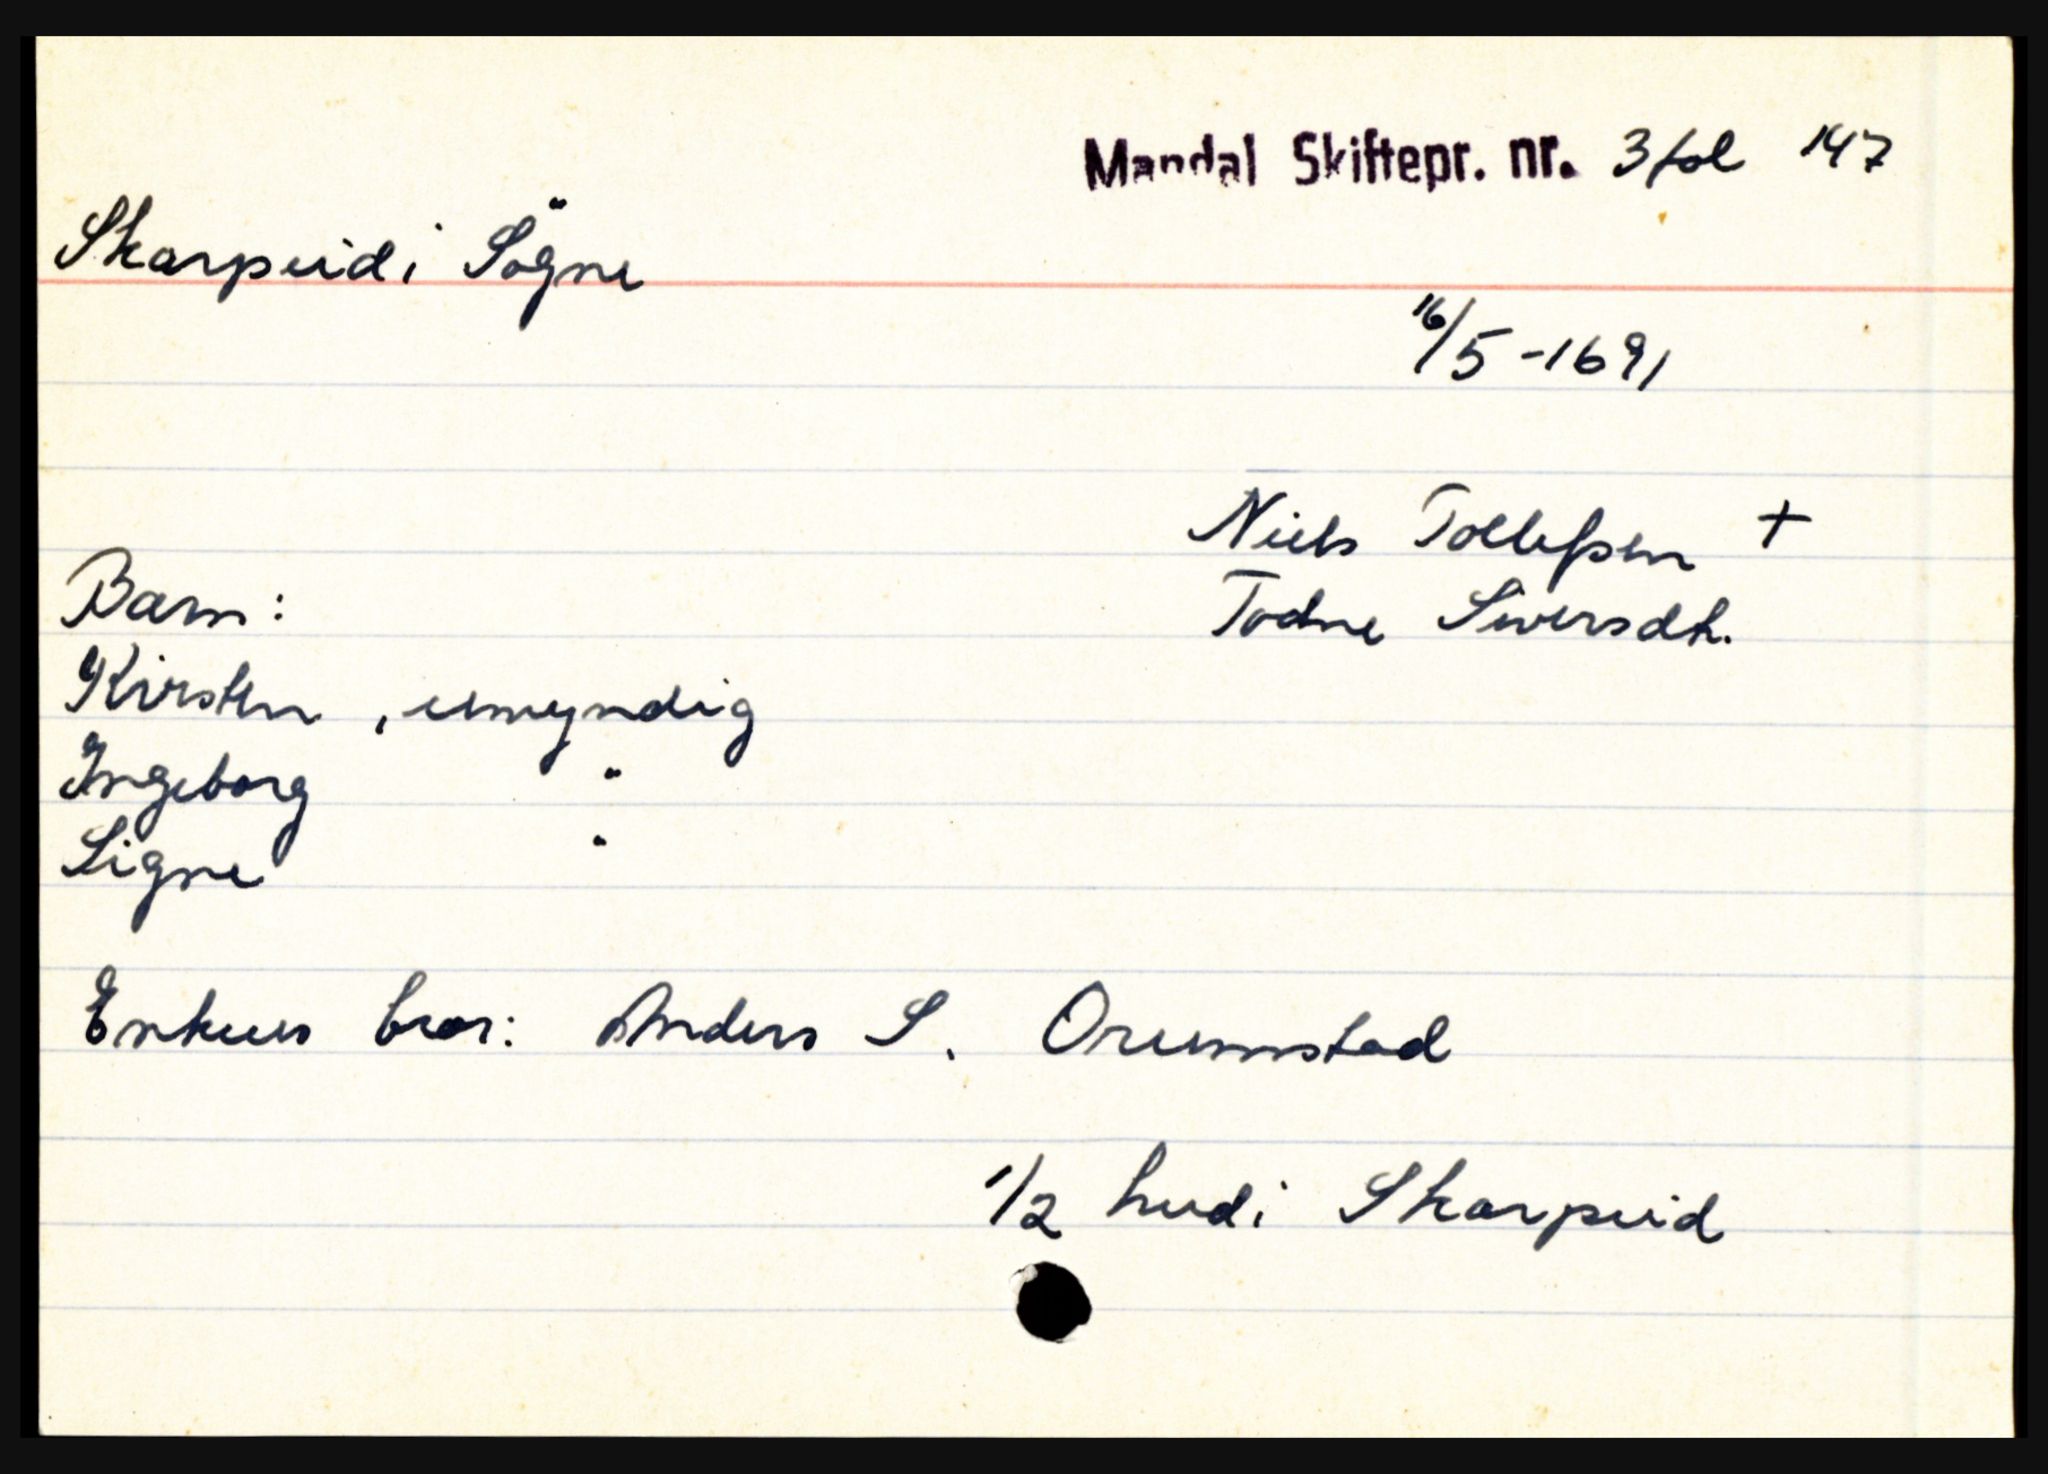 Mandal Skiftepr. nr. 3 fol 147
Skarpeid i Sögne
16/5-1691
Niels Tollefsen +
Todne Siversdt.
Barn:
Kirsten, umyndig
Ingeborg "
Signe "
Enkens bror: Anders S. Orumstad
1/2 hud i Skarpeid